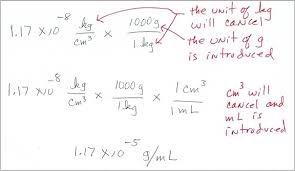 1.17 X10⁻⁸ kg/cm³ × 1000g/1 kg
the unit of kg
will cancel
the unit of g
is introduced
1.17 X10⁻⁸ kg/cm³ × 1000g/1 kg × 1 cm³/1 mL
cm³ will
cancel and
mL is
introduced
1.17 X10⁻⁵ g/mL